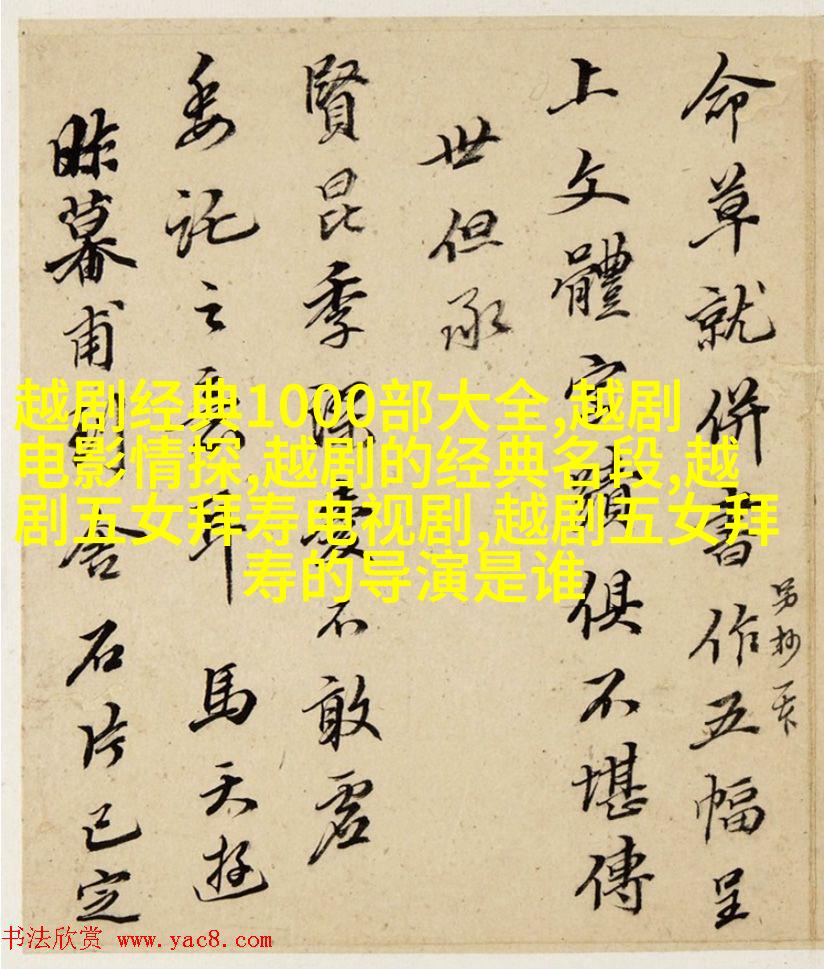 命草就併書作五幅呈
另抄
上文體字蹟俱不堪傳
世但承
賢昆季愛不敢虛
委託之耳 馬天遊
昨暮甫到舍石片已定
越剧经典1000部大全,越剧
电影情探,越剧的经典名段,越
剧五女拜寿电视剧,越剧五女拜
寿的导演是谁
书法欣赏 www.yac8.com